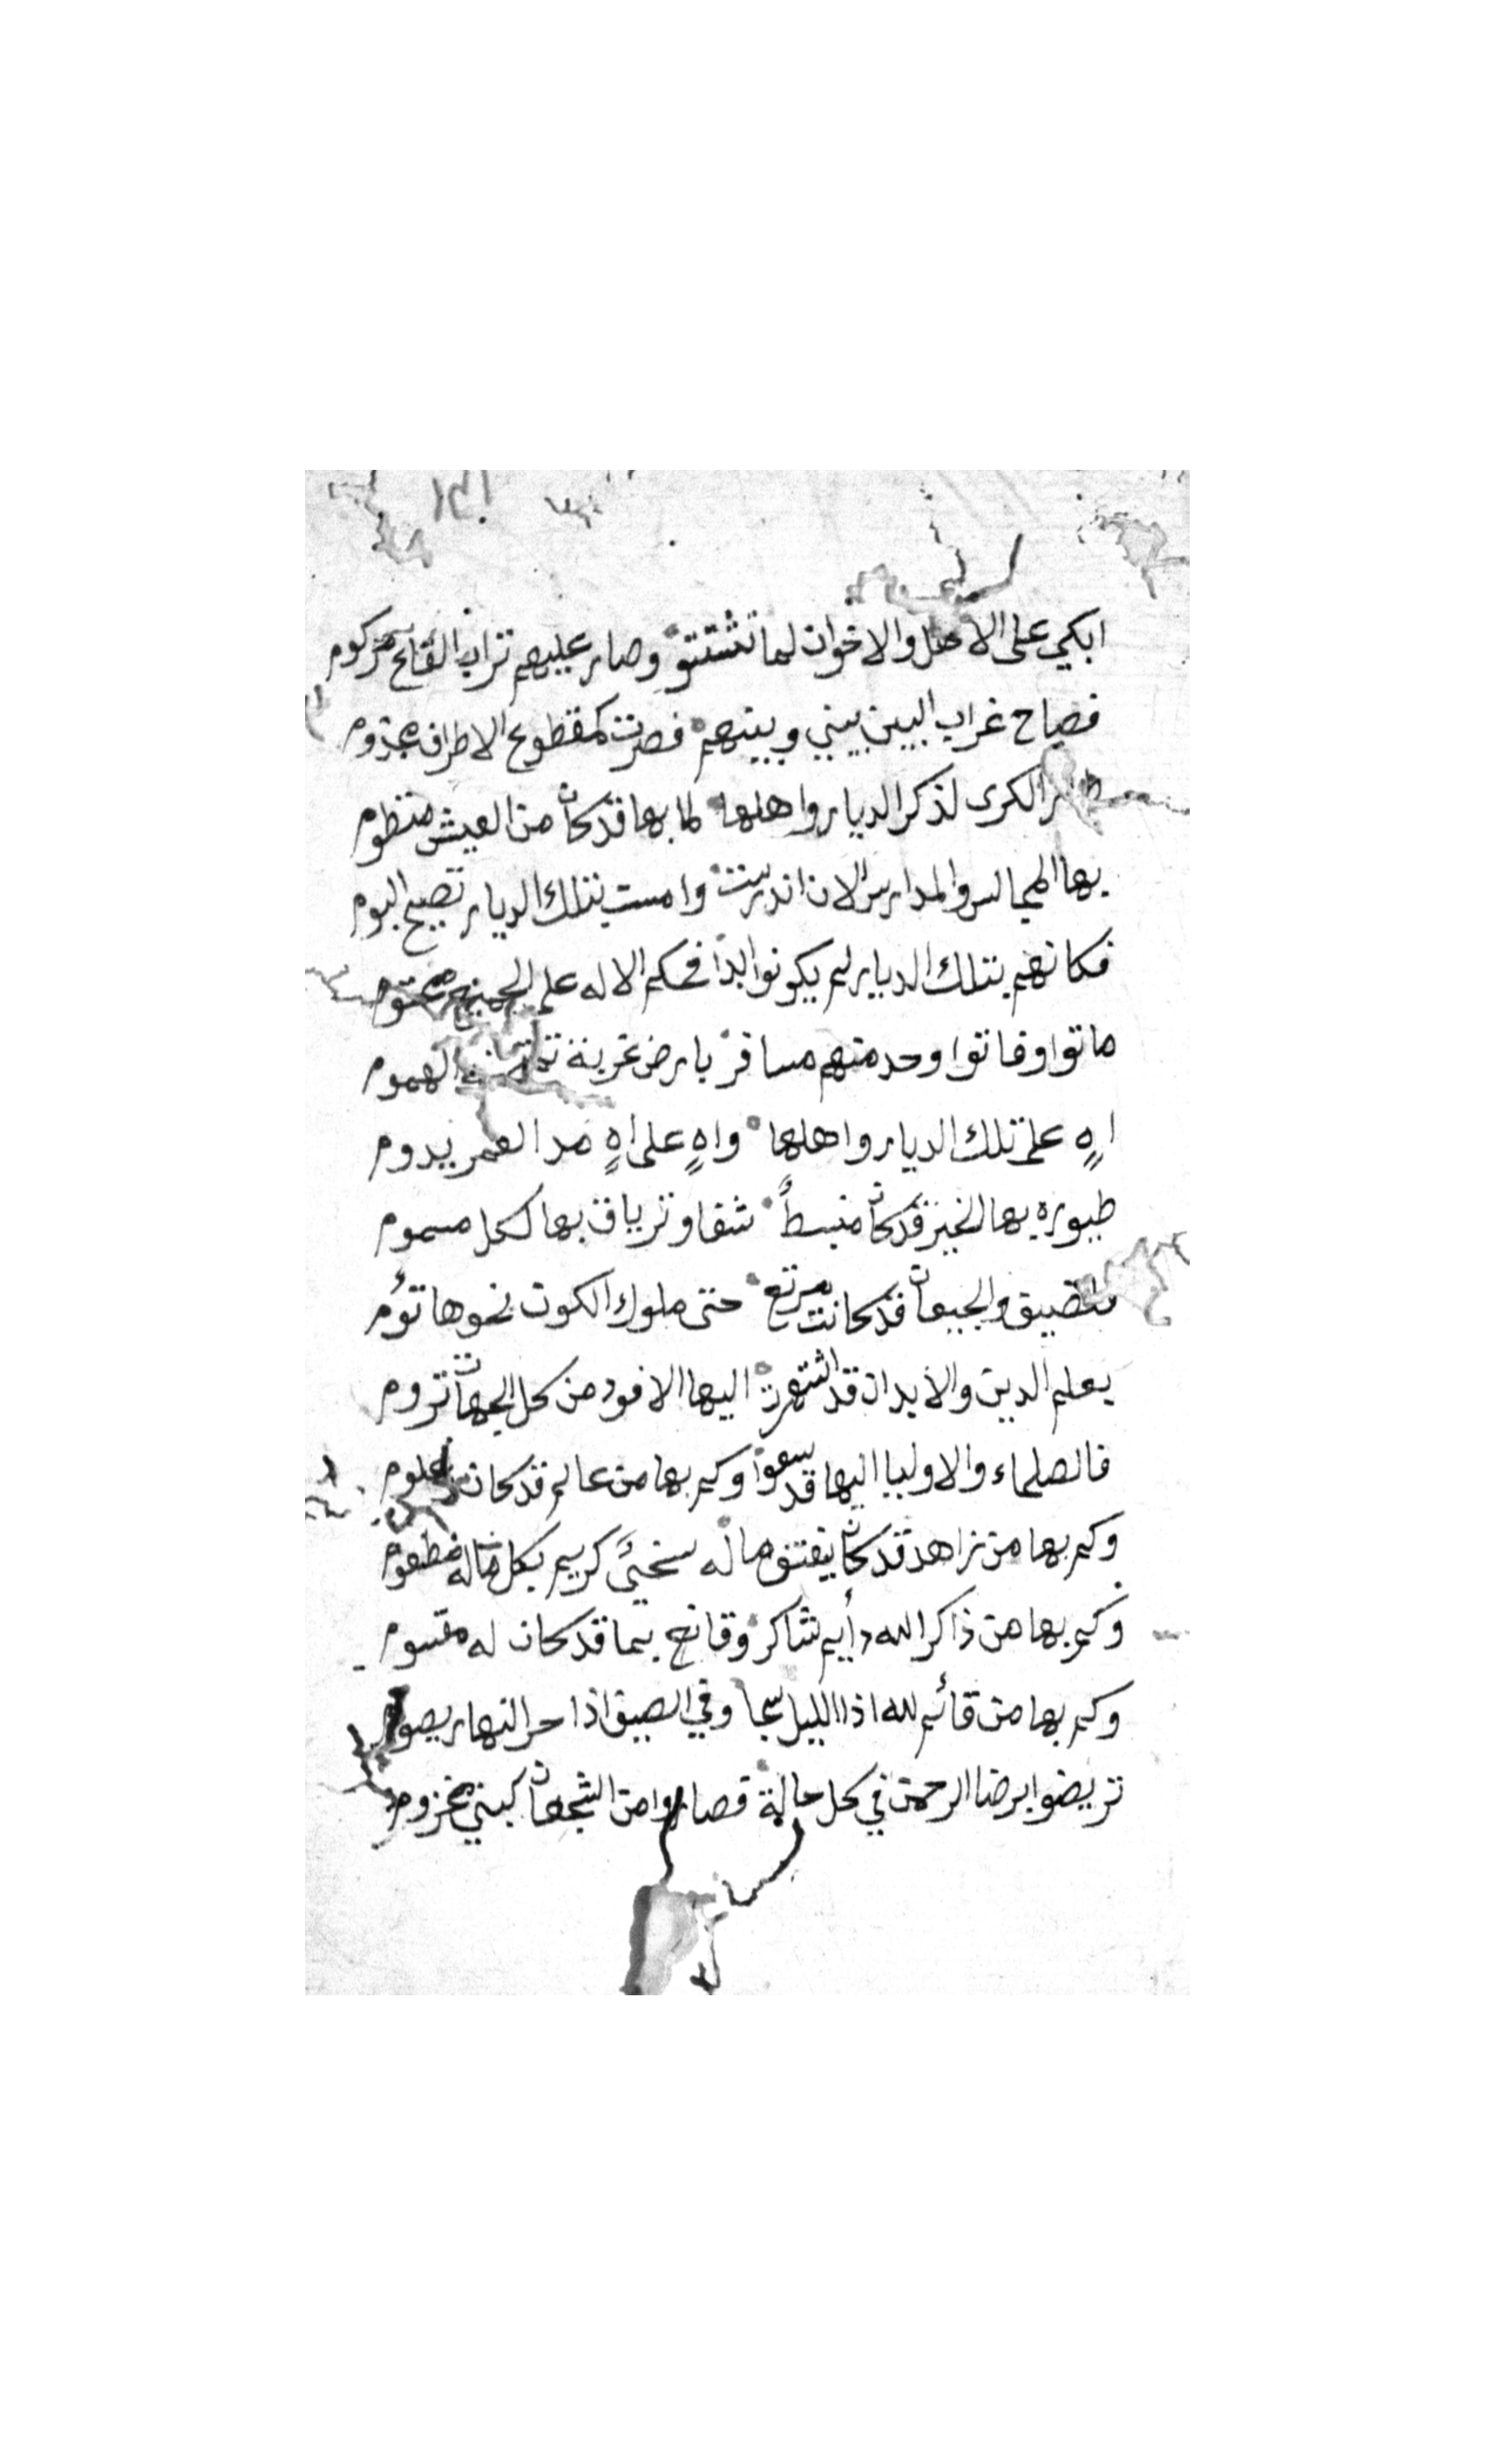 ابكي على الاهل والاخوان لما تشتتو وصار عليهم تراب القاع مركوم
فصاح غراب البين بيني وبينهم فصرت كمقطوع الاطراف مجذوم
الكرى لذكر الديار واهلها لما بها قد كان من العيش منظوم
بها المجالس والمدارس الان اندرست وامست بتلك الديار تصيح البوم
فكانهم بتلك الديار لم يكونوا ابدا فحكم الاله على الجميع محتوم
ماتوا وفاتوا وحد منهم مسافر بارض غربة الهموم
اهٍ على تلك الديار واهلها واهٍ على اهٍ مدا العمر يدوم
طيوره بها الخير قد كان منبسطً شفا وترياق بها لكل مسموم
فلضيق والجيعان قد كانت مرتع حتى ملوك الكون نحوها تؤم
بعلم الدين والابدان قد اشتهرت اليها الافود من كل الجهات تروم
فالصلحاء والاوليا اليها قد سعوا وكم بها من عالم قد كان علوم
وكم بها من زاهد قد كان ينفق ماله سخيً كريم بكل ماله
وكم بها من ذاكر الله دأيم شاكر وقانع بما قد كان له مقسوم
وكم بها من قائم لله اذا الليل سجا وفي الصيف اذا حر النهار يصوم
تريضوا برضا الرحمن في كل حالة فصاروا من الشجعان كبني مخزوم